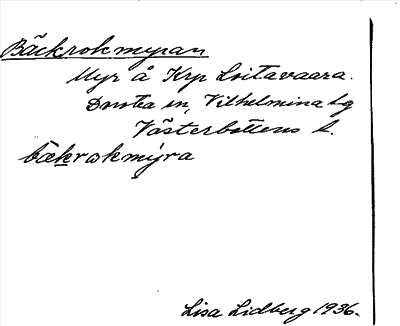 Bäckrokmyran
Myr å Krp Loitavaara.
Dorotea sn, Vilhelmina tg
Västerbottens l.
bækrokmýra
Lisa Lidberg 1936.